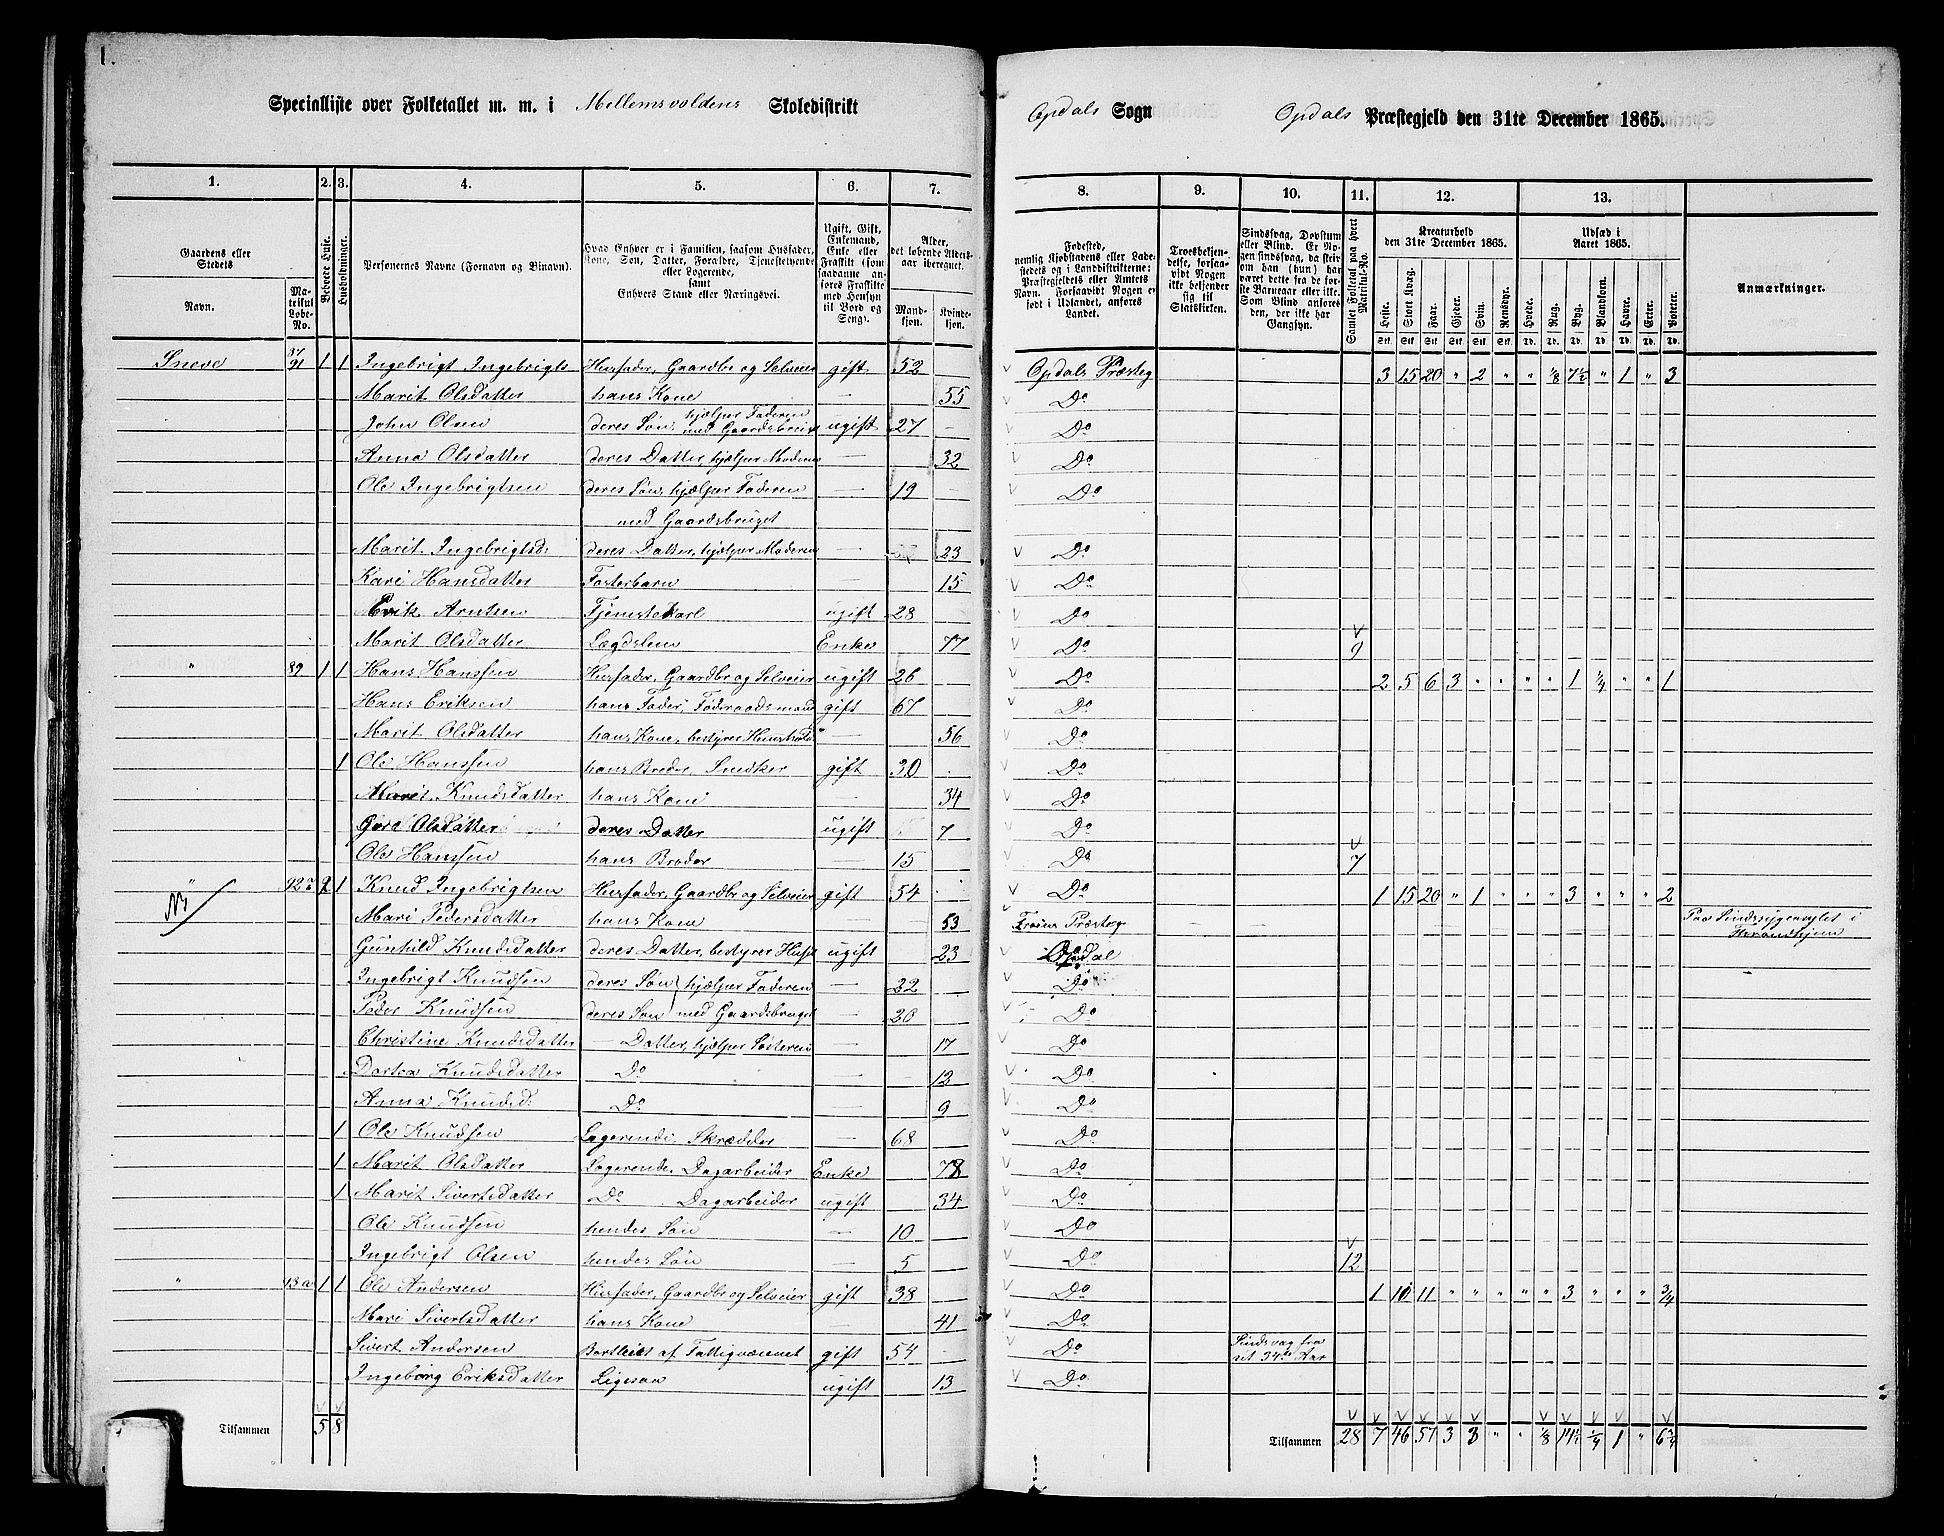 1.
Specialliste over Folketallet m. m. i Mellemsvoldens Skoledistrikt
Opdals Sogn Opdals Præstegjeld den 31te December 1865.
1. 2. 3. 4. 5. 6. 7. 8. 9. 10. 11. 12. 13.
Gaardens eller Stedets Navn.
Matrikul Løbe-No.
Beboede Huse.
Husholdninger.
Personernes Navne (Fornavn og Binavn).
Hvad Enhver er i Familien, saasom Husfader, Kone, Søn, Datter, Forældre, Tjenestetyende eller Logerende, samt Enhvers Stand eller Næringsvei.
Ugift, Gift, Enkemand, Enke eller Fraskilt (som saadanne anføres Fraskilte med Hensyn til Bord og Seng).
Alder, det løbende Aldersaar iberegnet.
Mandkjøn. Kvindekjøn.
Fødested, nemlig Kjøbstadens eller Ladestedets og i Landdistrikterne: Præstegjeldets eller Amtets Navn. Forsaavidt Nogen er født i Udlandet, anføres Landet.
Troesbekjendelse, forsaavidt Nogen ikke bekjender sig til Statskirken.
Sindssvag, Døvstum eller Blind. Er Nogen sindssvag, da skrives om han (hun) har været dette fra de første Barneaar eller ikke. Som Blind anføres den, der ikke har Gangsyn.
Samlet Folketal paa hvert Matrikul-No.
Kreaturhold den 31te December 1865.
Heste. Stort Kvæg. Faar. Gjeder. Svin. Rensdyr.
Udsæd i Aaret 1865.
Hvede. Rug. Byg. Blandkorn. Havre. Erter. Poteter.
Anmærkninger.
Sneve 91 1 1 Ingebrigt Ingebrigts Husfader, Gaardbr og Selveier gift 52 Opdals Præsteg 3 15 20 " 2 " " 1/8 7 1/2 " 1 " 3
Marit Olsdatter hans Kone — 55 Do
John Olsen deres Søn, hjælper Faderen med Gaardsbruget ugift 27 Do
Anna Olsdatter deres Datter, hjælper Moderen — 32 Do
Ole Ingebrigtsen deres Søn, hjælper Faderen — 19 Do
med Gaardsbruget
Marit Ingebrigtsd. deres Datter, hjælper Moderen — 23 Do
Kari Hansdatter Fosterbarn — 15 Do
Erik Arntsen Tjenestekarl ugift 28 Do
Marit Olsdatter Lægdslem Enke 77 Do 9
" 89 1 1 Hans Hanssen Husfader, Gaardbr og Selveier ugift 26 Do 2 5 6 3 " " " " 1 1/4 " " 1
Hans Eriksen hans Fader, Føderaadsmand gift 67 Do
Marit Olsdatter hans Kone, bestyrer Huushold — 56 Do
1 Ole Hanssen hans Broder, Snedker gift 30 Do
Marit Knudsdatter hans Kone 34 Do
Goro Olsdatter deres Datter ugift 7 Do
Ole Hanssen hans Broder — 15 Do 7
" 92 2 1 Knud Ingebrigtsen Husfader, Gaardbr og Selveier gift 54 Do 1 15 20 " 1 " " " 3 " " " 2
Mari Pedersdatter hans Kone — 53 Præsteg Paa Sindssygeasylet i
Gunhild Knudsdatter deres Datter, bestyrer Huset ugift 23 Opdal
Ingebrigt Knudsen deres Søn hjælper Faderen — 22 Do
Peder Knudsen deres Søn med Gaardsbruget — 20 Do
Christine Knudsdatter — Datter, hjælper Søsteren — 17 Do
Dortea Knudsdatter Do — 12 Do
Anna Knudsd. Do — 9 Do
1 Ole Knudsen Logerende, Skrædder — 68 Do
1 Marit Olsdatter Logerende, Dagarbeider Enke 78 Do
1 Marit Sivertsdatter Do Dagarbeider ugift 34 Do
Ole Knudsen hendes Søn — 10 Do
Ingebrigt Olsen hendes Søn — 5 Do 12
" 93 a 1 1 Ole Andersen Husfader, Gaardbr og Selveier gift 38 Do 1 10 11 " " " " " 3 " " " 3/4
Mari Sivertsdatter hans Kone — 41 Do
Sivert Andersen Bortleiet af Fattigvæsenet gift 54 Do Sindsvag fra sit 34te Aar
Ingeborg Eriksdatter Ligesaa ugift 13 Do
Tilsammen 5 8
Tilsammen 28 7 46 57 3 3 " " 1/8 14 1/2 1/4 1 " 6 3/4